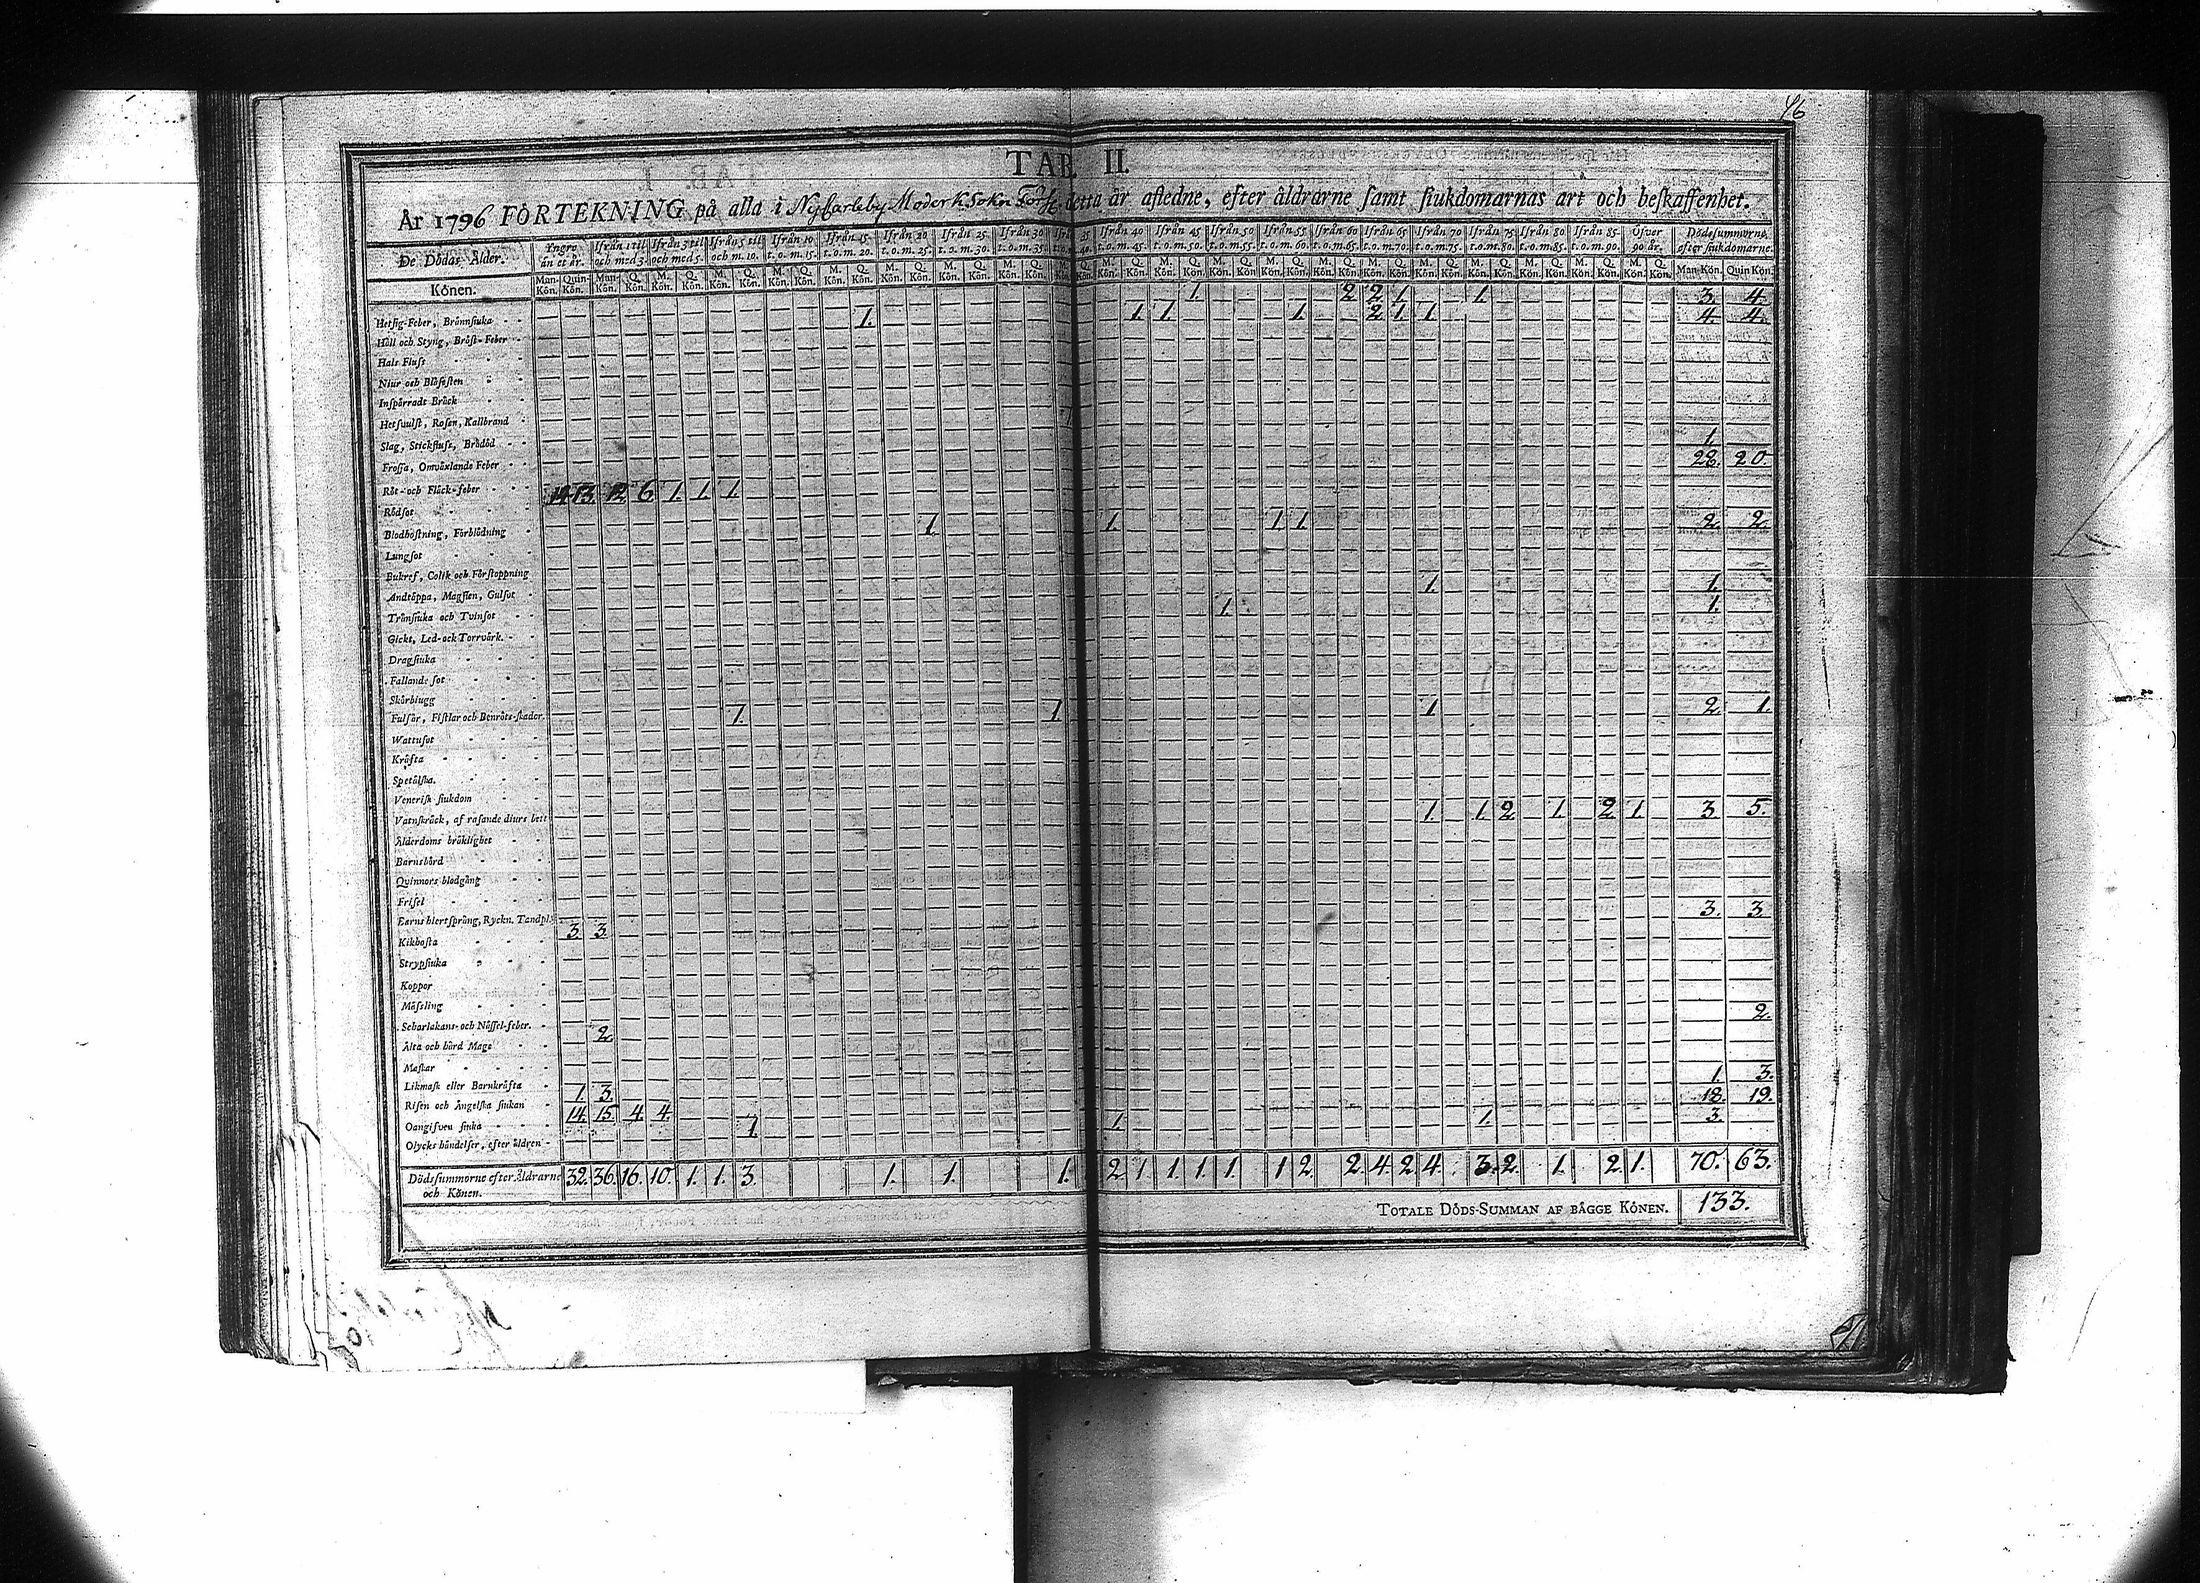 46
TAB. II.
År 1796 FÖRTEKNING på alla i Nykarleby Moder K. Sokn detta år afledne, efter åldrarne samt siukdomarnas art och beskaffenhet.
De Dödas Ålder. Yngre än et år. Ifrån 1 til och med 3. Ifrån 3 til och med 5. Ifrån 5 til och m. 10. Ifrån 10 t.o.m. 15. Ifrån 15 t.o.m. 20. Ifrån 20 t.o.m. 25. Ifrån 25 t.o.m. 30. Ifrån 30 t.o.m. 35. Ifrån 40 t.o.m. 45. Ifrån 45 t.o.m. 50. Ifrån 50 t.o.m. 55. Ifrån 55 t.o.m. 60. Ifrån 60 t.o.m. 65. Ifrån 65 t.o.m. 70. Ifrån 70 t.o.m. 75. Ifrån 75 t.o.m. 80. Ifrån 80 t.o.m. 85. Ifrån 85 t.o.m. 90. Öfver 90 år. Dödssummorne efter siukdomarne.
Könen. Man-Kön. Quin-Kön. Man-Kön. Q. Kön. M. Kön. Q. Kön. M. Kön. Q. Kön. M. Kön. Q. Kön. M. Kön. Q. Kön. M. Kön. Q. Kön. M. Kön. Q. Kön. Man-Kön. Quin Kön.
Hetsig-Feber, Brännsiuka 1. 2 2 1. 1. 3. 4.
Håll och Styng, Bröst-Feber 1. 1. 1. 1. 2 1. 1. 4. 4.
Hals Fluss
Niur och Blåsesten
Inspärradt Bråck
Hetsvulst, Rosen, Kallbrand
Slag, Stickfluss, Brådöd 1.
Frossa, Omväxlande Feber 28. 20.
Röt- och Fläck-feber 14 13 12 6 1. 1. 1.
Rödsot
Blodhostning, Förblödning 1. 1. 1. 1. 2. 2.
Lungsot
Bukref, Colik och Förstoppning
Andtäppa, Magsten, Gulsot 1. 1.
Trånsiuka och Tvinsot 1. 1.
Gickt, Led- och Torrvärk.
Dragsiuka
Fallande sot
Skörbiugg
Fulsår, Fistlar och Benröts-skador 1. 1. 1. 2. 1.
Wattusot
Kräfta
Spetälska.
Venerisk siukdom
Vatnskräck, af rasande diurs bett 1. 1. 2 1. 2 1. 3. 5.
Ålderdoms bräklighet
Barnsbörd
Qvinnors blodgång
Frisel
Barns hiertsprång, Ryckn. Tandpl. 3. 3.
Kikhosta 3. 3.
Strypsiuka
Koppor
Mässling
Scharlakans- och Nässel-feber. 2.
Älta och hård Mage 2.
Maskar
Likmask eller Barnkräfta 1. 3.
Risen och Ängelska siukan 1. 3. 18. 19.
Oangifven siuka 14. 15. 4. 4. 1. 1. 3.
Olycks händelser, efter åldren 1.
Dödssummorne efter Åldrarne och Könen. 32. 36. 16. 10. 1. 1. 3. 1. 1. 1. 2 1 1. 1. 1. 1 2. 2. 4. 2 4. 3. 2. 1. 2 1. 70. 63.
TOTALE DÖDS-SUMMAN AF BÅGGE KÖNEN. 133.